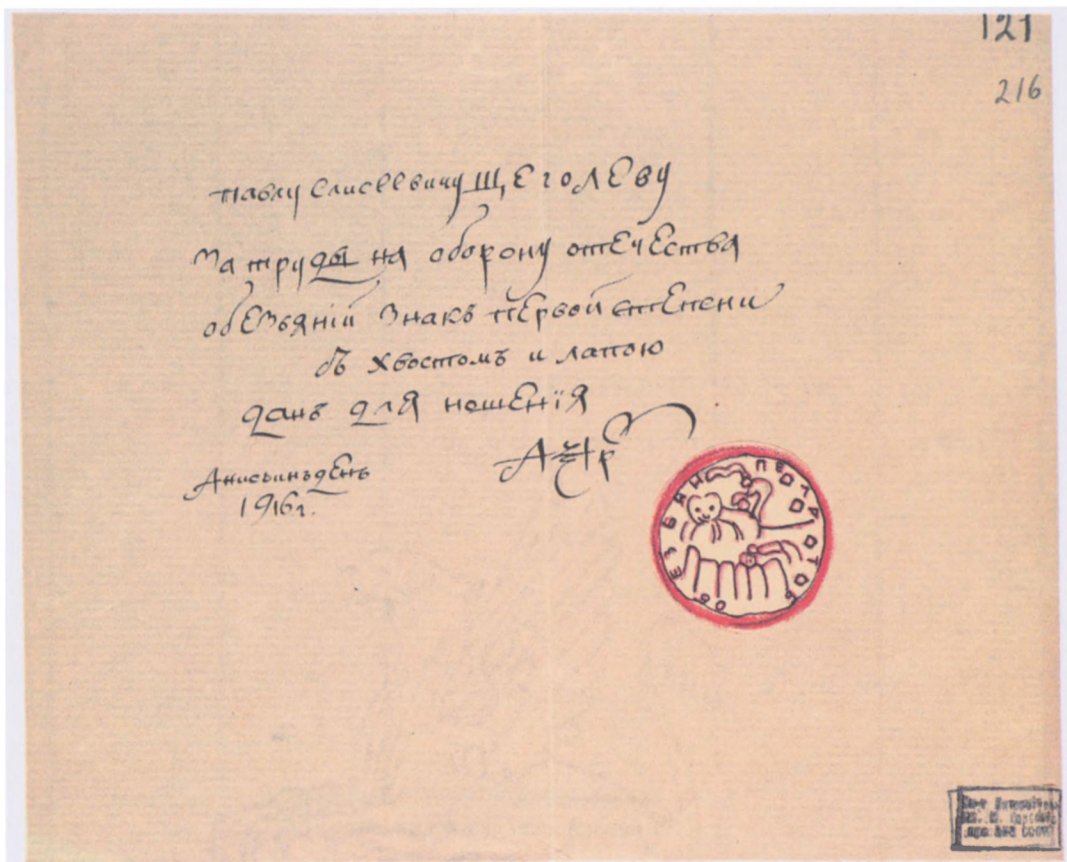 121
216
Павлу Елисеевичу ЩЕГОЛЕВУ
За труды на оборону отечества
обезьянiй знакъ первой степени
съ хвостомъ и лапою
данъ для ношенiя
Анисьинъ день
1916 г.